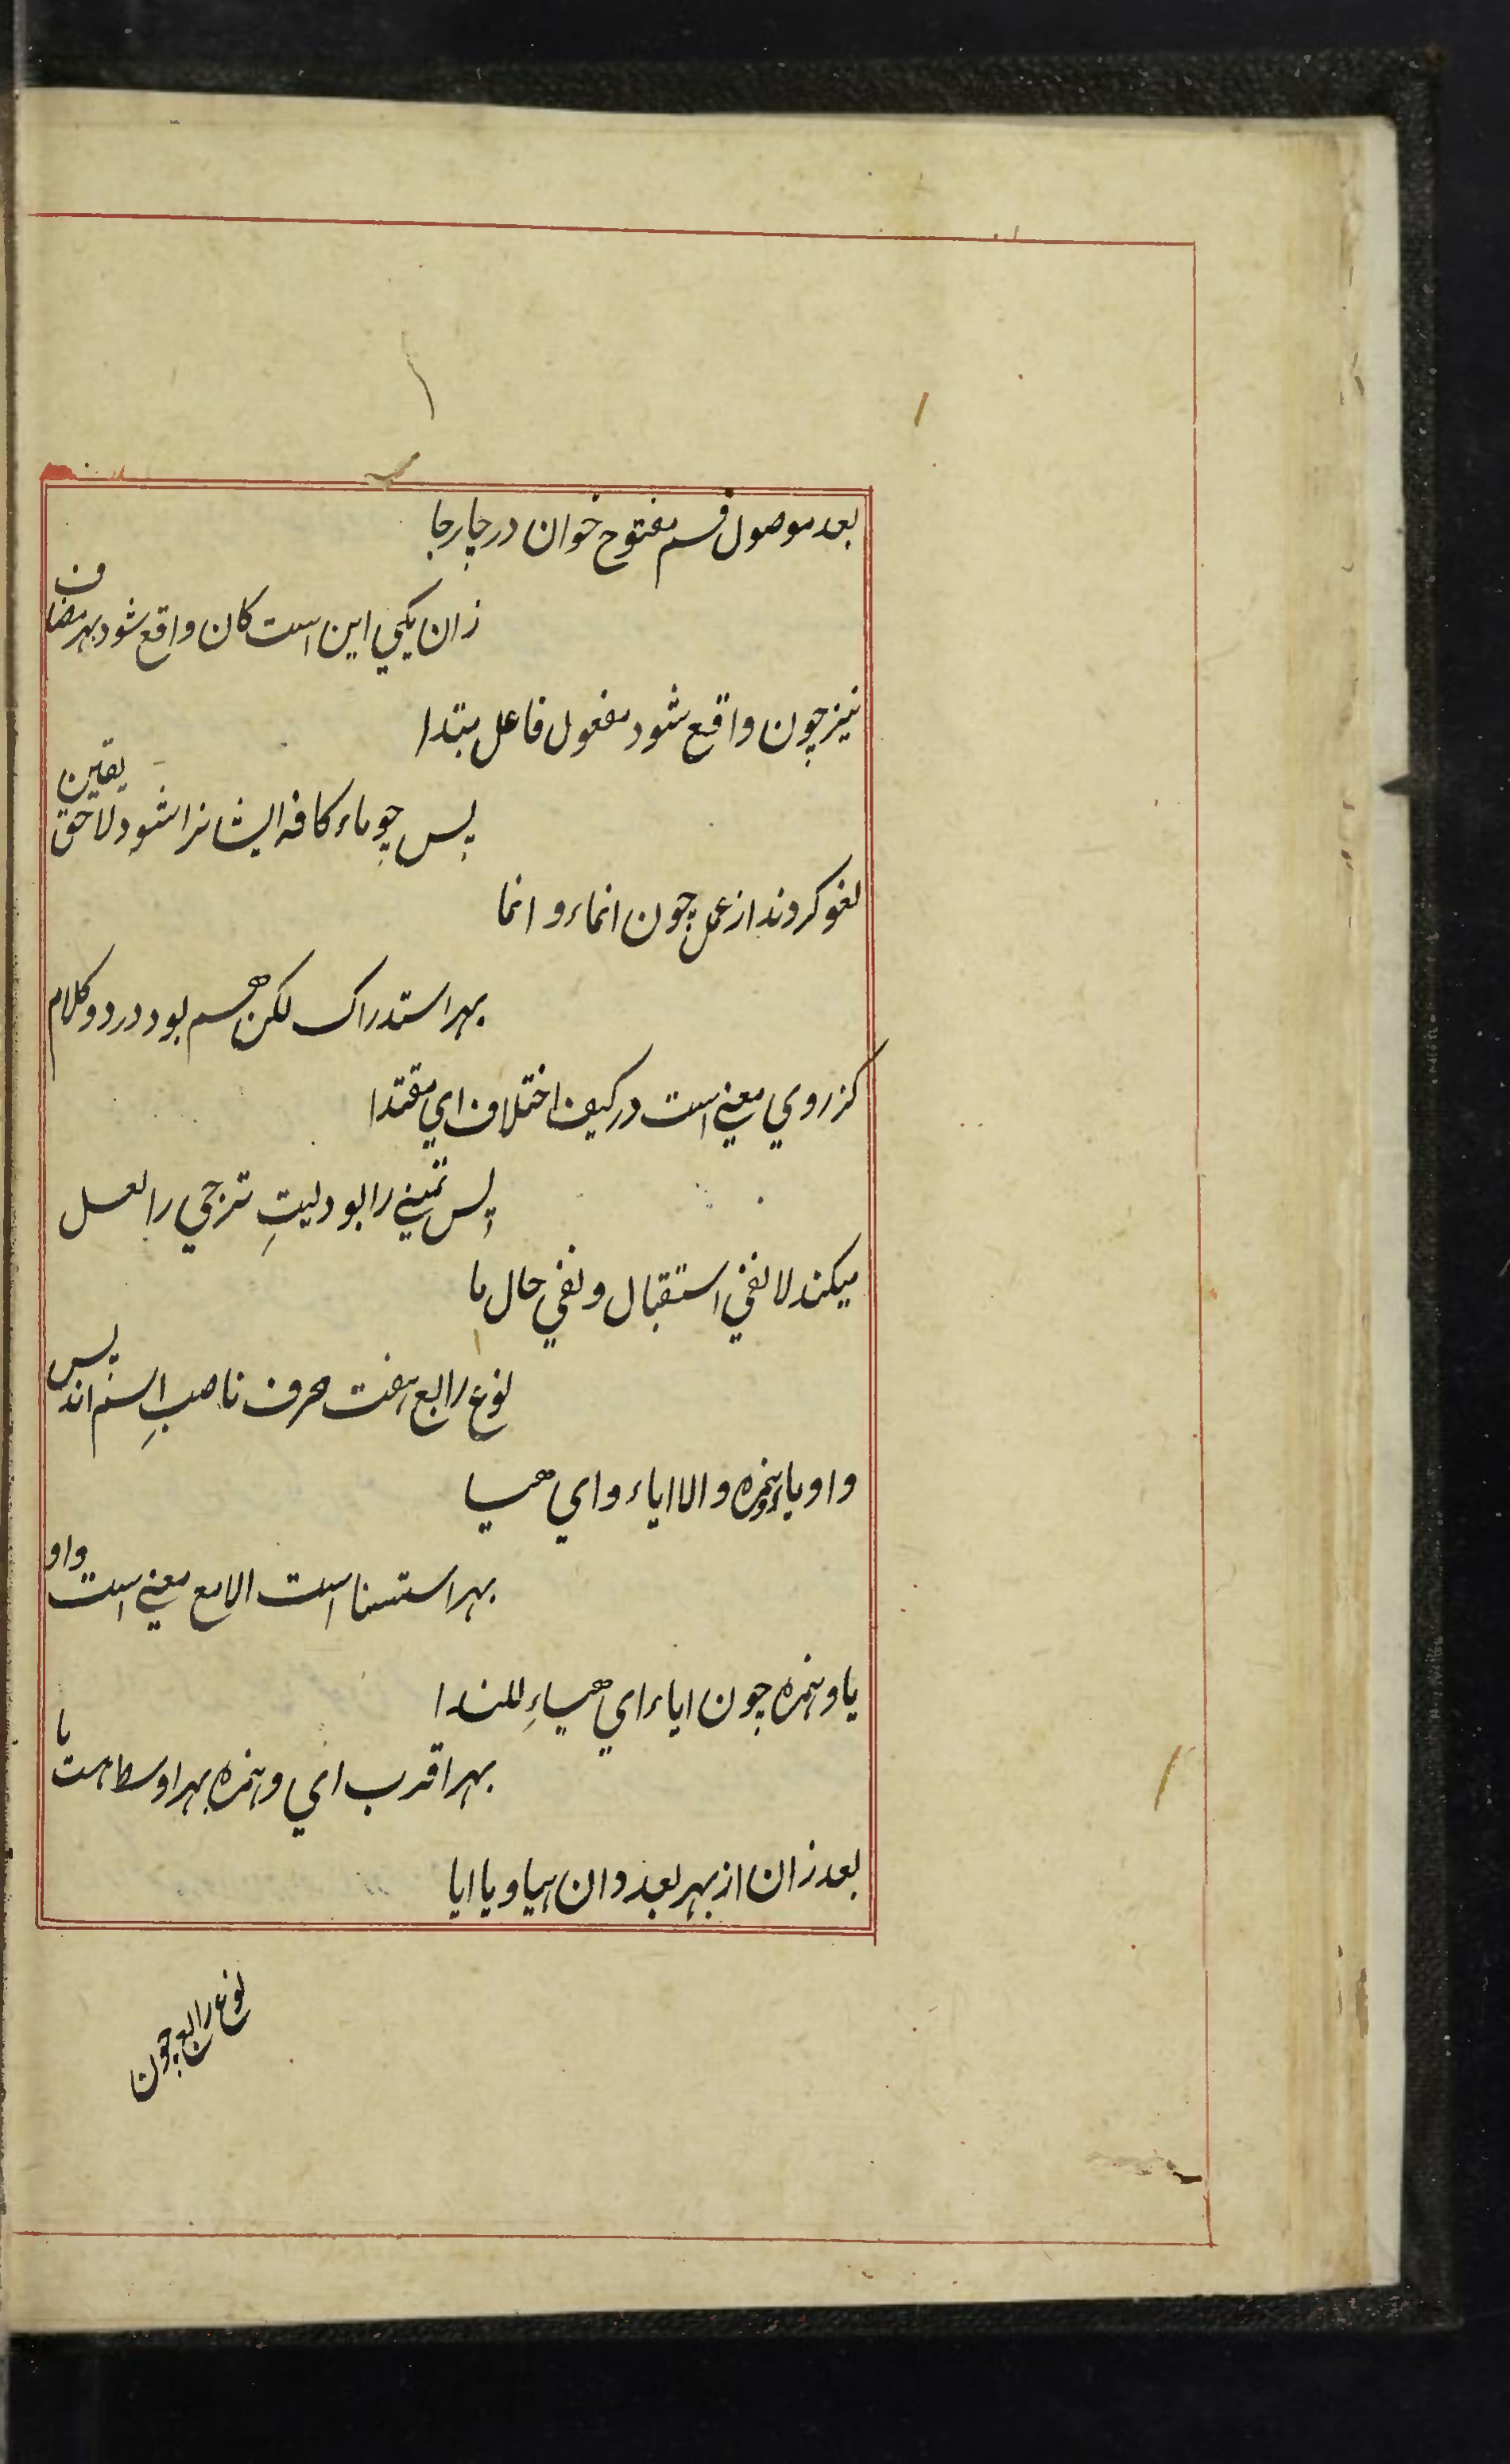 بعد موصول قسم مفتوح خوان در چار جا
زان یکی این است کان واقع شود بهر مضاف
نیز چون واقع شود مفعول فاعل مبتدا
پس چو ماء کافه ایشانرا شود لاحق یقین
لغو کردند از عمل چون انماء و انما
بهر استدراک لکن هم بود در دو کلام
کز روی معنی است در کیف اختلاف ای مقتدا
پس تمنی را بود لیتِ ترجی را لعل
میکند لا نفی استقبال و نفی حال ما
نوع رابع هفت حرف ناصبِ اسم اند پس
واو یاء همزه و الا ایاء و ای هیا
بهر استسنا است الا مع معنی است واو
یا و همزه چون ایاء ای هیاءِ للندا
بهر اقرب ای و همزه بهر اوسط هست یا
بعد زان از بهر بعد دان هیا و یا ایا
نوع رابع چون